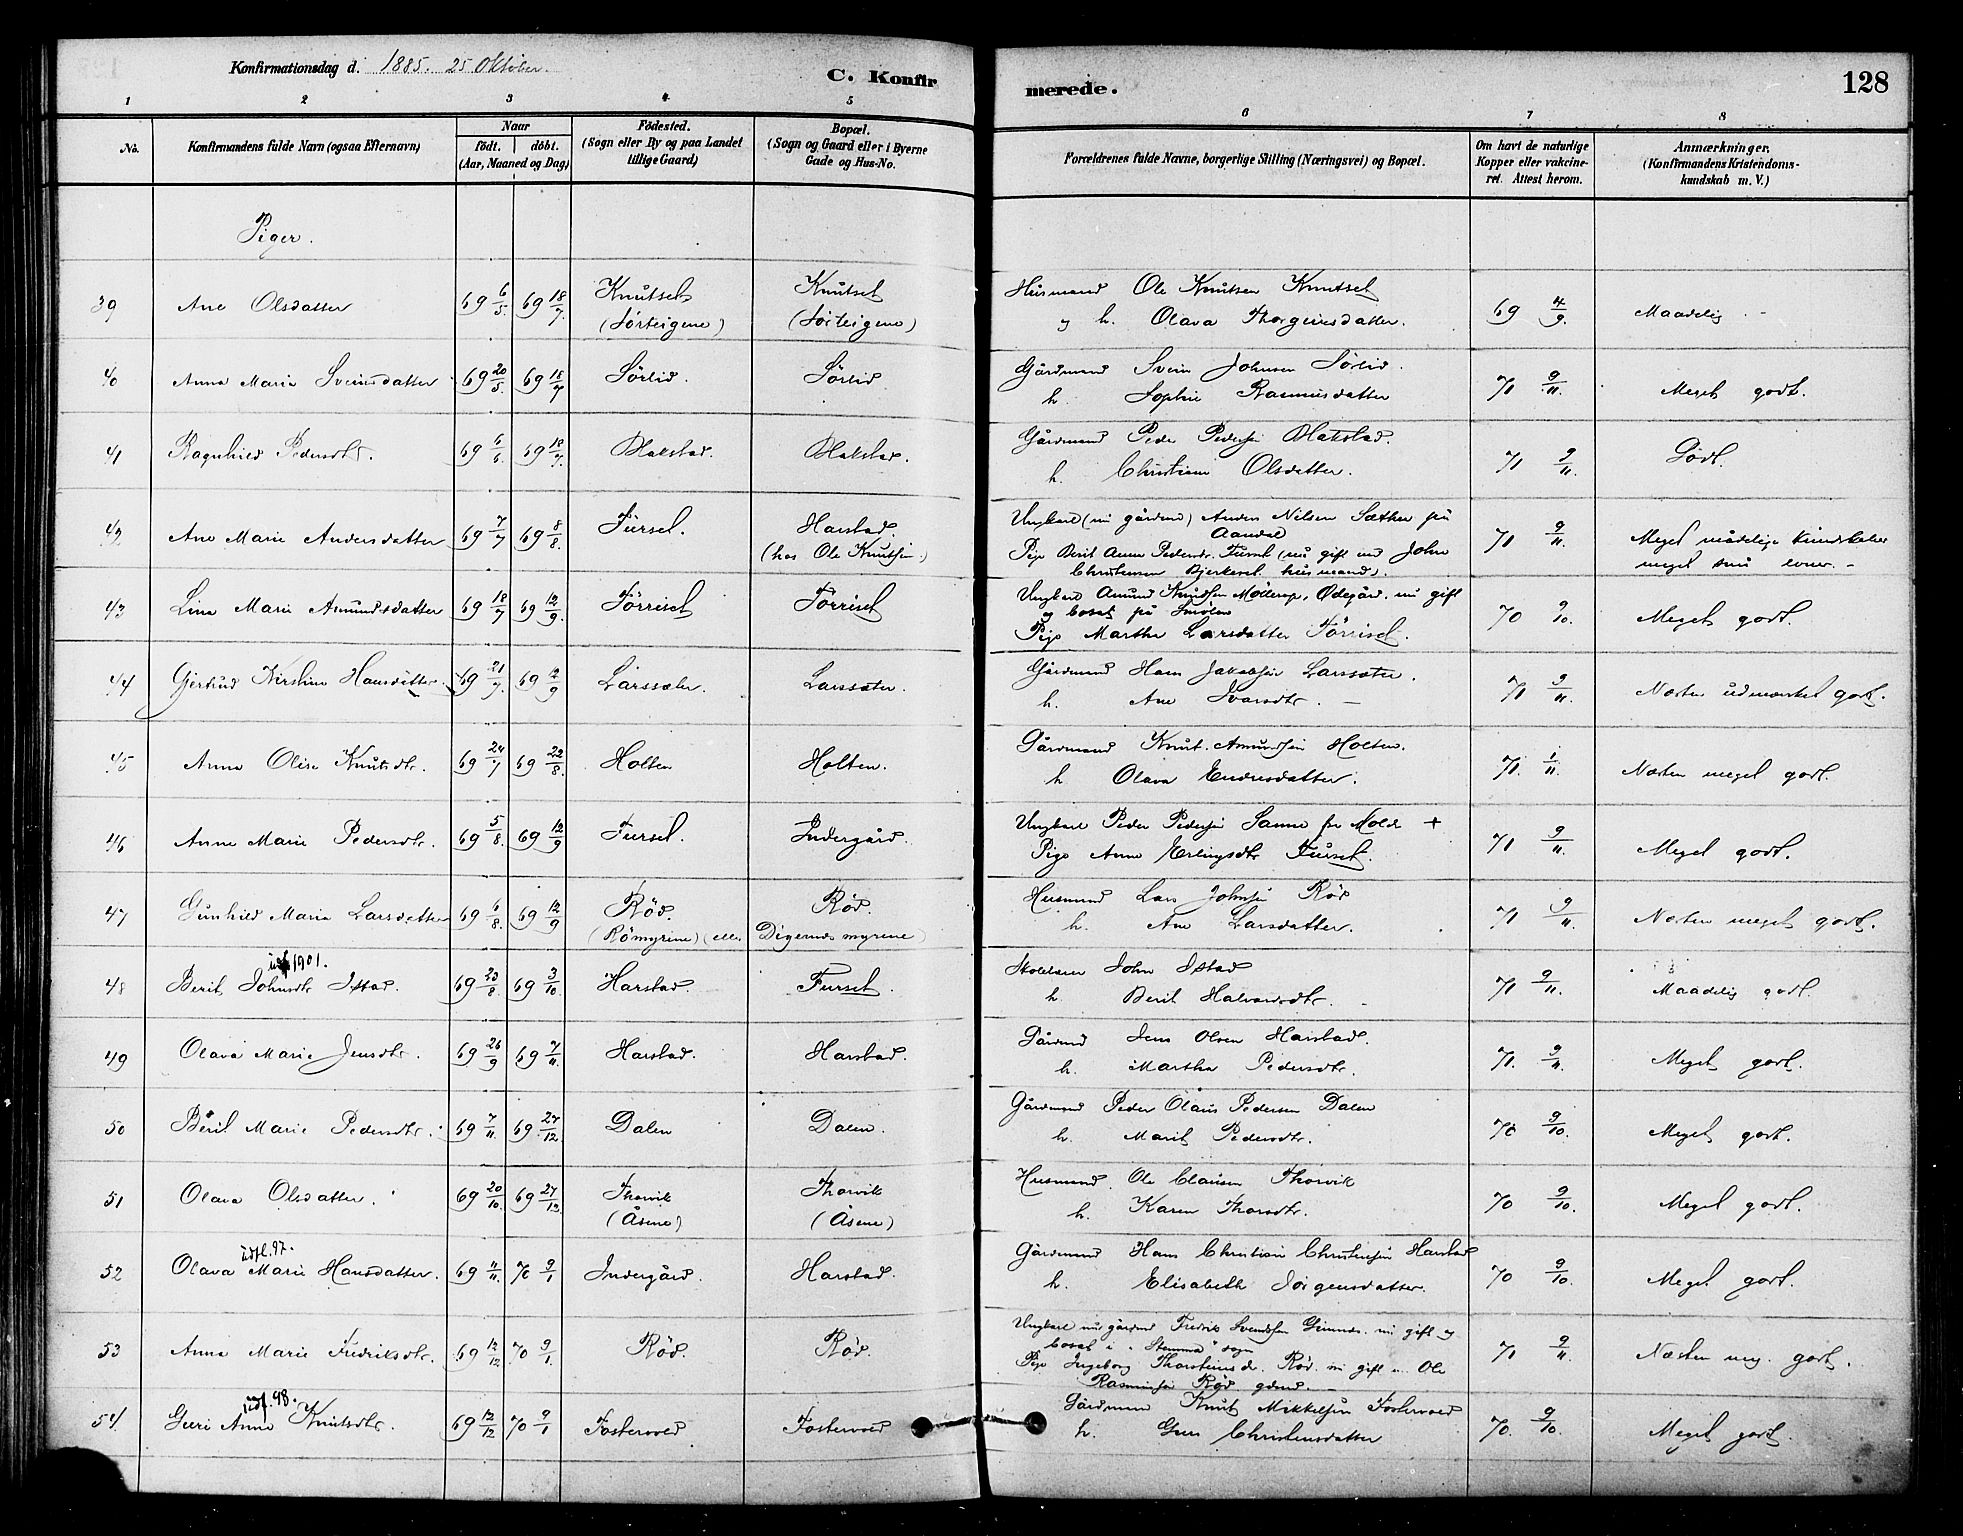 Konfirmationsdag d. 1885. 25 Oktober.
C. Konfirmerede.
128
1 2 3 4 5 6 7 8
No. Konfirmandens fulde Navn (ogsaa Efternavn) Naar födt. döbt. (Aar, Maaned og Dag) Födested. (Sogn eller By og paa Landet tillige Gaard) Bopæl. (Sogn og Gaard eller i Byerne Gade og Hus-No. Forældrenes fulde Navne, borgerlige Stilling (Næringsvei) og Bopæl. Om havt de naturlige Kopper eller vakcineret. Attest herom. Anmærkninger, (Konfirmandens Kristendomskundskab m. V.)
Piger.
39 Ane Olsdatter 69 6/5. 69 18/7 Knutset Knutset Husmand Ole Knutsen Knutset 69 4/9. Maadelig.
(Sørteigene) (Sørteigene) og h. Olava Thorgeirsdatter.
40 Anna Maria Sveinsdatter 69 20/5. 69 18/7 Sørlid. Sørlid. Gårdmand Svein Johnsen Sørlid. 71 9/11. Meget godt.
h. Sophie Rasmusdatter
41 Ragnhild Pedersdtr. 69 6/6 69 18/7. Hakstad. Hakstad. Gårdmand Peder Pedersen Hakstad. 71 9/11. Godt.
h. Christiane Olsdatter.
42 Ane Marie Andersdatter 69 7/7 69 8/8. Furset. Harstad. Ungkarl (nu gårdmd) Anders Nilsen Sæther på Aandal 71 9/11. Meget mådelige kundskaber
(hos Ole Knutsen) Pige Berit Anne Pedersdr. Furset (nu gift med John meget små evner. -
Christensen Bjerkeset husmand).
43 Lina Marie Amundsdatter 69 18/7 69 12/9. Tørriset Tørriset Ungkarl Amund Knudsen Møllerop, Ødegård. nu gift 70 9/10. Meget godt.
og bosat på Smølen
Pige Marthe Larsdatter Tørriset.
44 Gjertrud Kirstine Hansdatter 69 21/7. 69 12/9 Larssæter. Larssæter. Gårdmand Hans Jakobsen Larssæter. 71 9/11. Næsten udmærket godt.
h. Ane Ivarsdtr. -
45 Anne Olise Knutsdtr. 69 24/7 69 22/8. Holten Holten. Gårdmand Knut Amundsen Holten. 71. 1/11. Næsten meget godt.
h. Olava Endresdatter.
46 Anne Marie Pedersdtr. 69 5/8. 69 12/9 Furset. Indergård. Ungkarl Peder Pedersen Sanne fra Molde + 71 9/11. Meget godt.
Pige Anne Erlingsdtr Furset.
47 Gunhild Maria Larsdatter 69 6/8. 69 12/9 Rød. Rød. Husmand Lars Johnsen Rød 71 9/11. Næsten meget godt.
(Rømyrene) (eller Digernesmyrene) h. Ane Larsdatter.
udf 1901.
48 Berit Johnsdtr Istad. 69 23/8 69 3/10 Harstad. Furset. John Istad 71 9/11. Maadelig godt.
h. Berit Halvorsdtr. -
49 Olava Marie Jensdtr. 69 26/9 69 7/11. Harstad. Harstad. Gårdmd Jens Olsen Harstad. 71. 9/11. Meget godt.
h. Martha Pedersdtr.
50 Berit Marie Pedersdtr. 69 7/11. 69 27/12. Dalen Dalen. Gårdmand Peder Olaus Pedersen Dalen 70 9/10. Meget godt.
h. Marit Pedersdtr.
51 Olava Olsdatter. 69 20/10. 69 27/12. Thorvik Thorvik Husmand. Ole Clausen Thorvik 70 9/10. Meget godt.
(Åsene) (Åsene) h. Karen Thorsdtr.
udfl. 97.
52 Olava Marie Hansdatter. 69 11/11. 70 9/1 Indergård. Harstad. Gårdmand Hans Christian Christensen Harstad 70 9/10. Meget godt.
h. Elisabeth Jørgensdatter.
53 Anna Marie Fredriksdtr. 69 12/12 70 9/1. Rød. Rød. Ungkarl nu gårdmd Fredrik Svendsen nu gift og 71 9/11. Næsten meg. godt.
bosat i "Stemme" sogn
Pige Ingeborg Thorsteinsdr. Rød. nu gift m. Ole
Rasmussen Rød gdmd. -
udf. 98.
54 Guri Anna Knutsdtr. 69 12/12 70 9/1 Fostervold Fostervold Gårdman Knut Mikkelsen Fostervold 70. 9/10. Meget godt.
h. Guri Christensdatter